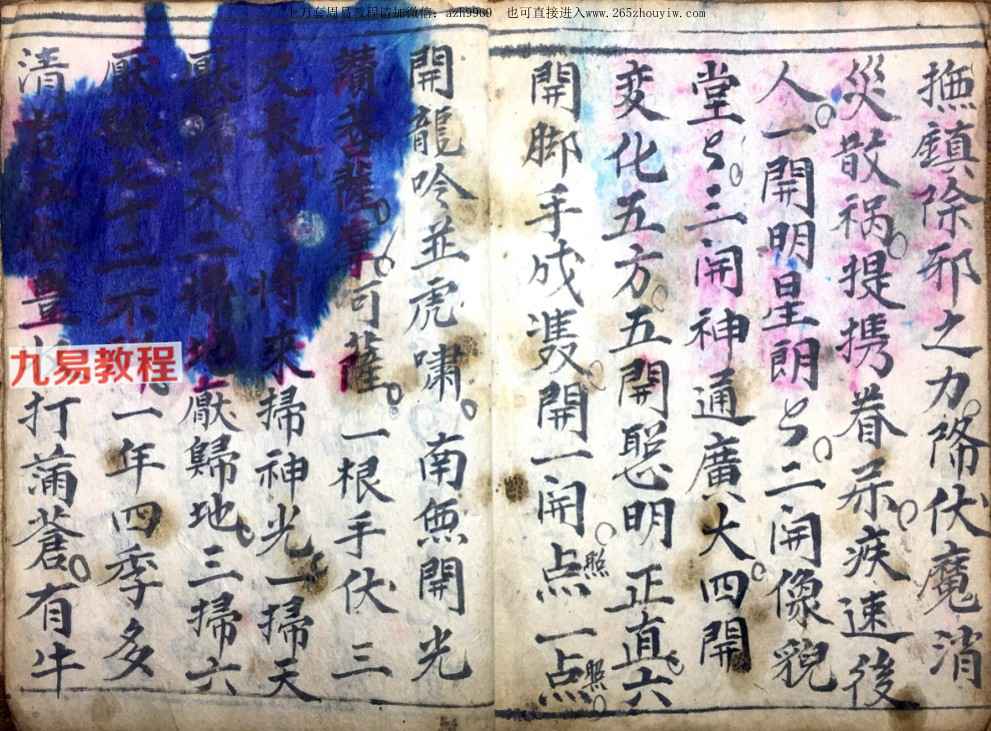 上万套周易教程请加微信:azh9960 也可直接进入www.265zhouyiw.com
撫鎮除邪之力降伏魔消
災散祸提携眷属疾速後
人一開明星朗〻二開像貌
堂〻三開神通廣大四開
变化五方五開聪明正直六
開脚手成双開一開点照一点照
開龍吟並虎嘯南無開光
菩薩可薩一根手伏三
尺長将來掃神光一掃天
天二掃地厭歸地三掃六
十二不一年四季多
清打蒲蒼有牛
九易教程